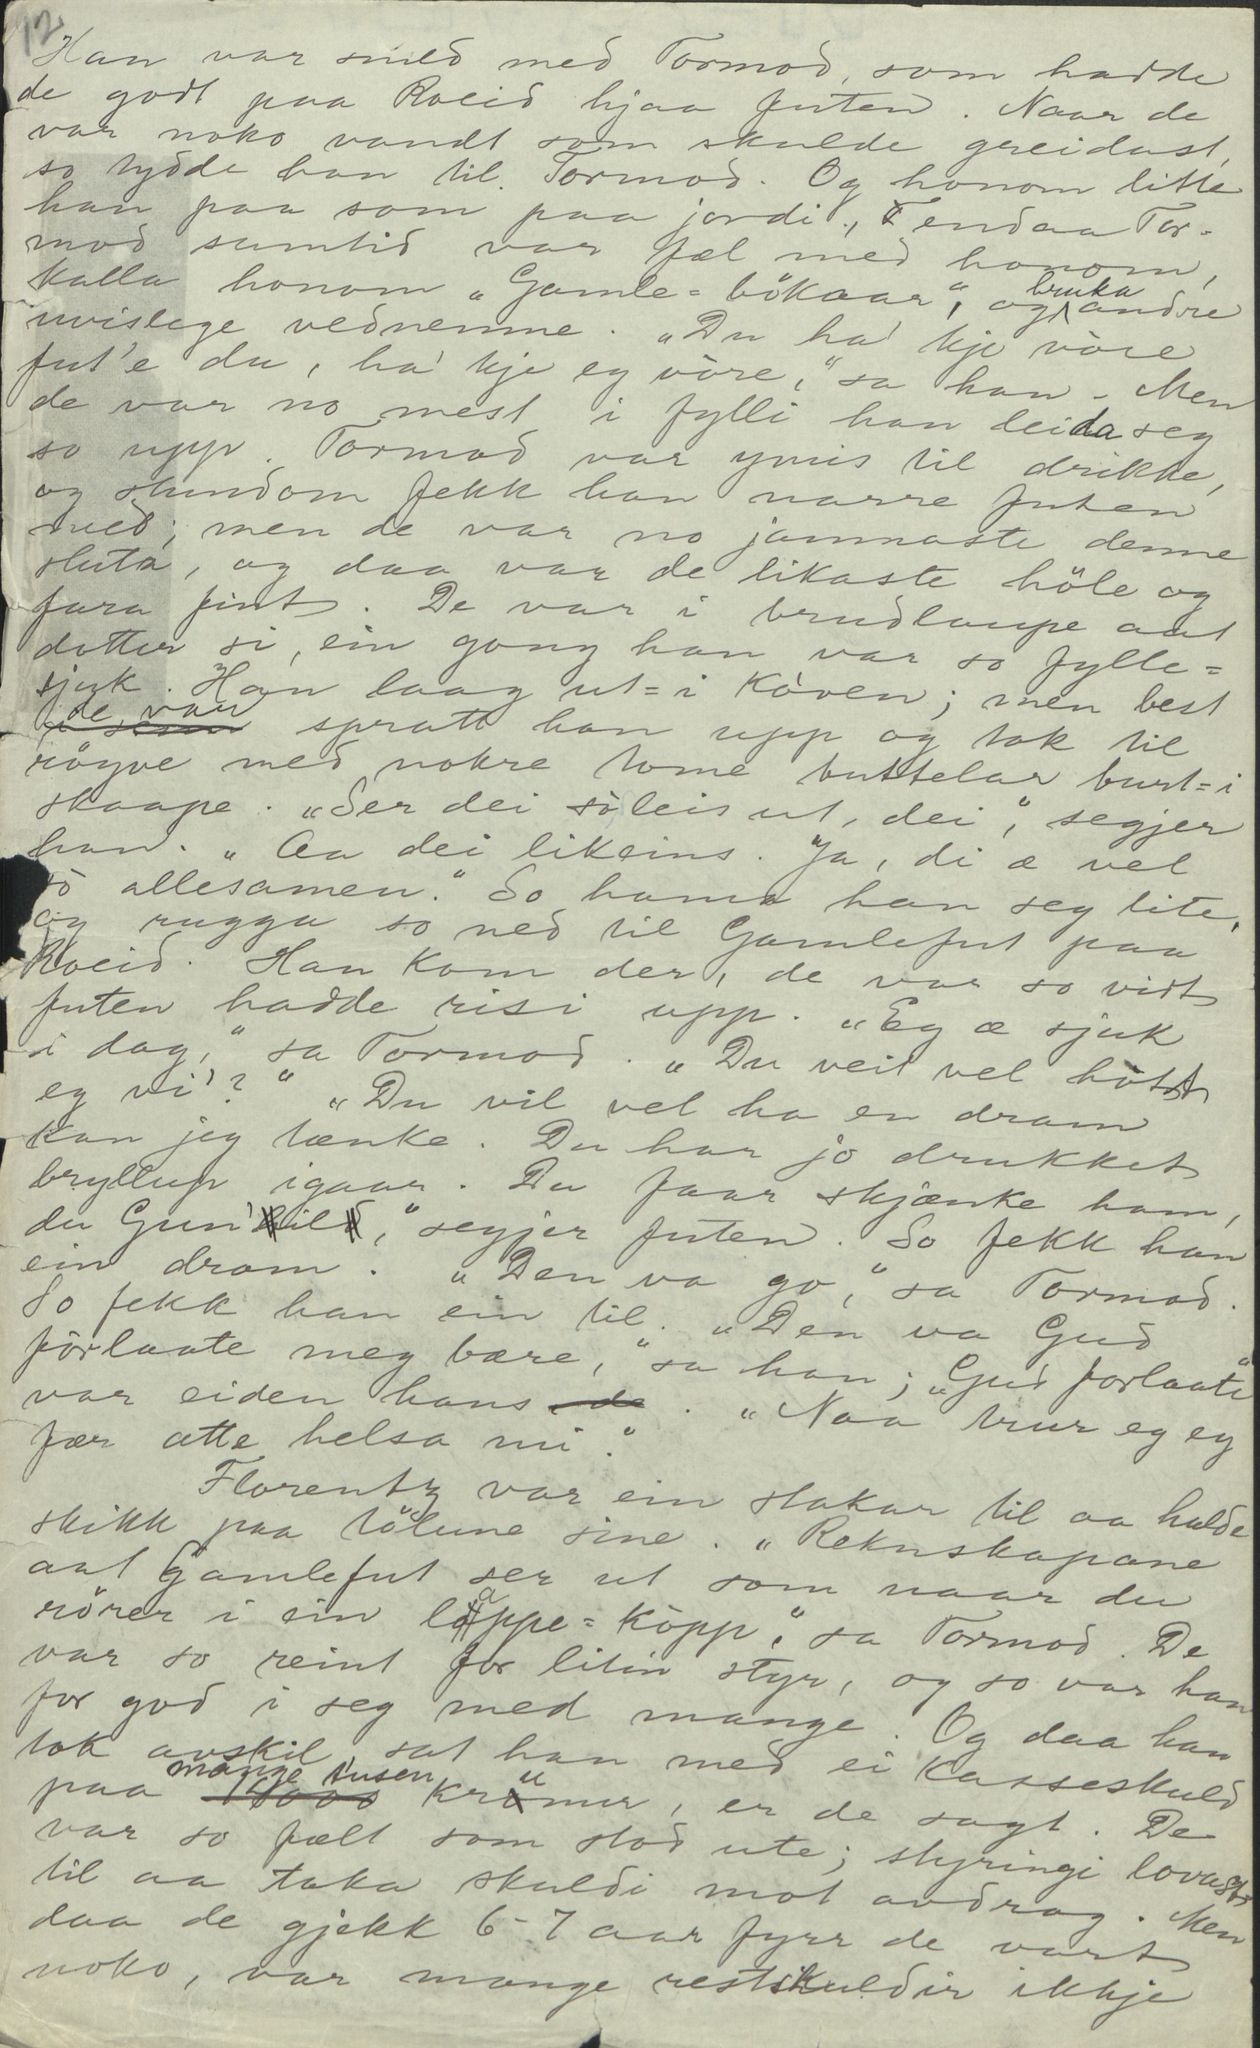 12
Han var snild med Tormod, som hadde
de godt paa Roeid hjaa futen. Naar de
var noko vandt som skulde greidast,
so tydde han til Tormod. Og honom litte
han paa som paa jordi, endaa Tor=
mod samtid var fæl med honom,
kalla honom „Gamle=bökaar“, og bruka andre
uvislege vednemne. „Du ha' kje vòre
fut'e du, ha' kje eg vòre,“ sa han. Men
de var no mest i fylli han leida seg
so upp. Tormod var ymis til drikke,
og stundom fekk han narre futen
med; men de var no jamnaste denne
sluta, og daa var de likaste höle og
fara fint. De var i brudlaupe aat
dotter si, ein gong han var so fylle=
sjuk. Han laag ut=i kòven; men best
de var spratt han upp og tok til
röyve med nokre tome buttelar burt=i
skaape. „Ser dei sòleis ut, dei“, segjer
han. „Aa dei likeins. Ja, di æ vel
sò allesamen.“ So hama han seg lite,
og rugga so ned til Gamlefut paa
Roeid. Han kom der, de var so vidt
futen hadde risi upp. „Eg æ sjuk
i dag,“ sa Tormod. „Du veit vel hòtt
eg vi'?“ „Du vil vel ha en dram
kan jeg tænke. Du har jo drukket
bryllup igaar. Du faar skjænke ham,
du Gun'il,“ segjer futen. So fekk han
ein dram. „Den va go,“ sa Tormod.
So fekk han ein til. „Den va Gud
förlaate meg bære,“ sa han; „Gud forlaate“
var eiden hans. „Naa trur eg eg
fær atte helsa mi.“
Florentz var ein stakar til aa halde
skikk paa tölune sine. „Reknskapane
aat Gamlefut ser ut som naar du
rörer i ein lappe=kòpp,“ sa Tormod. De
var so reint for litin styr, og so var han
for god i seg med mange. Og daa han
tok avskil, sat han med ei kasseskuld
paa mange tusen krunur, er de sagt. De
var so fælt som stod ute; styringi lovast
til aa taka skuldi mot avdrag. Men
daa de gjekk 6-7 aar fyrr de vart
noko, var mange restskuldir ikkje